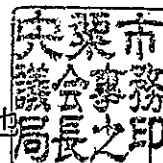 千葉市
議会事務
局長之印